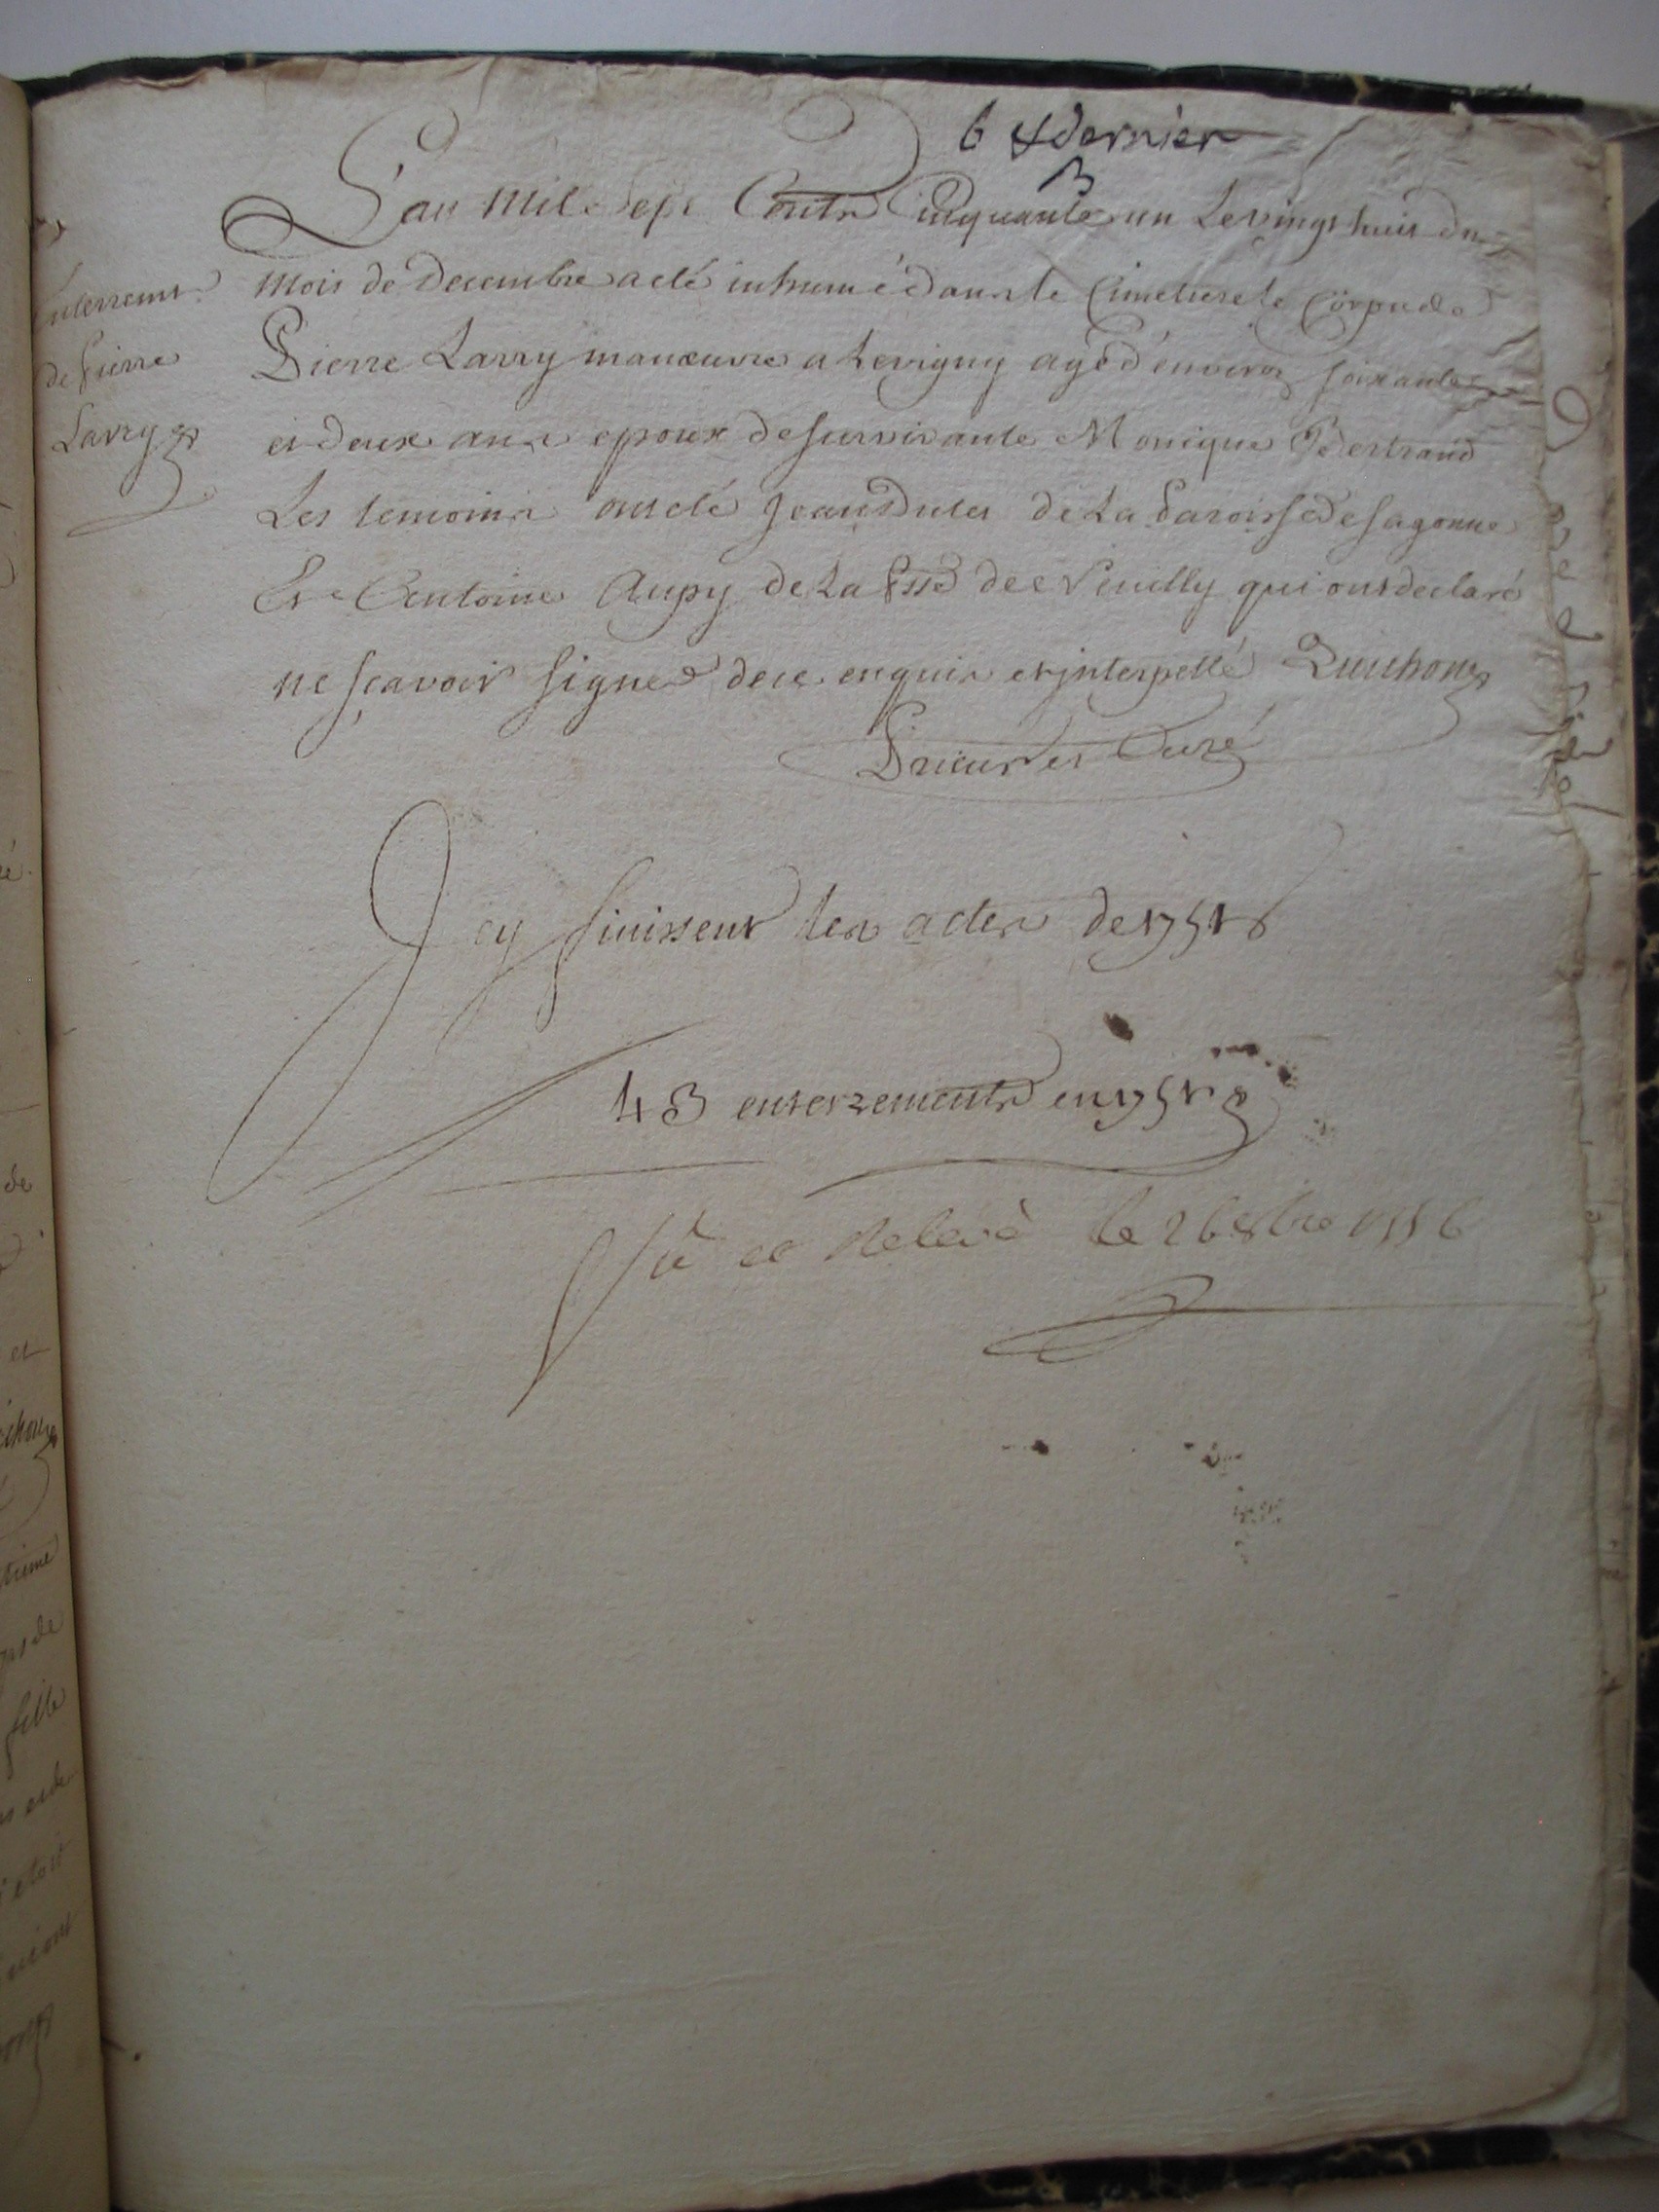 6 & dernier
L'an mil sept Cents Cinquante un Le vingt huit du
mois de Decembre a eté inhumé dans le Cimetiere le Corps de
Pierre Larry manœuvre a Levigny agé d'environ soixante
et deux ans epoux de survivante Monique Bertrand
Les temoins ont eté Jean de la Paroisse de Sagonne
Et Antoine Aupy de La Psse de Veuilly qui ont declaré
ne sçavoir signer de ce enquis et interpellé
Prieur et Curé
Enterremt
de Pierre
Larry
Icy finissent les actes de 1751
43 enterrements en 1751
Vû et Relevé le 26 8bre 1756